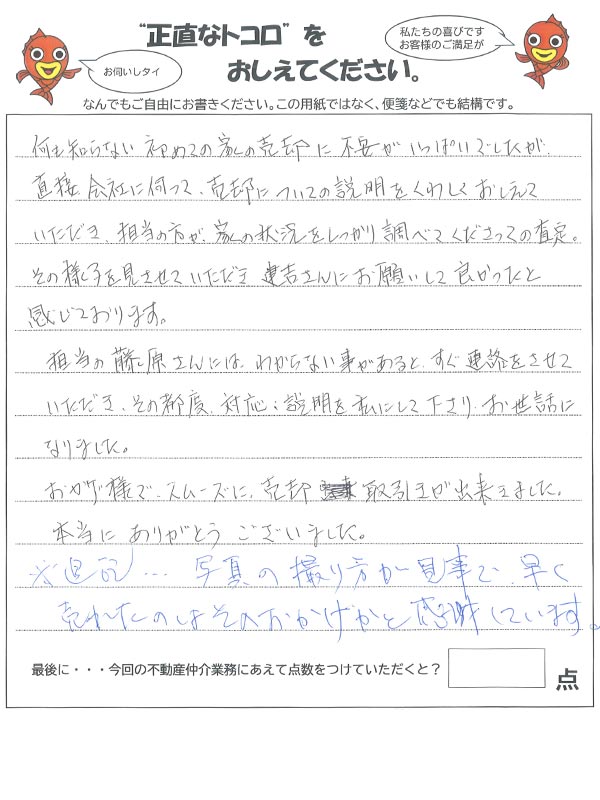 “正直なトコロ”を
おしえてください。
お伺いしタイ
私たちの喜びです
お客様のご満足が
なんでもご自由にお書きください。この用紙ではなく、便箋などでも結構です。
何も知らない 初めての家の売却に 不安がいっぱいでしたが
直接 会社に伺って、売却についての説明をくわしくおしえて
いただき、担当の方が、家の状況をしっかり調べてくださっての査定。
その様子を見させていただき 建吉さんにお願いして良かったと
感じております。
担当の藤原さんには、わからない事があると、すぐ連絡をさせて
いただき、その都度、対応・説明を私にして下さり、お世話に
なりました。
おかげ様で、スムーズに、売却 取引きが出来ました。
本当に ありがとう ございました。
※追記… 写真の撮り方が見事で 早く
売れたのはそのおかげかと感謝しています。
最後に・・・今回の不動産仲介業務にあえて点数をつけていただくと?
点